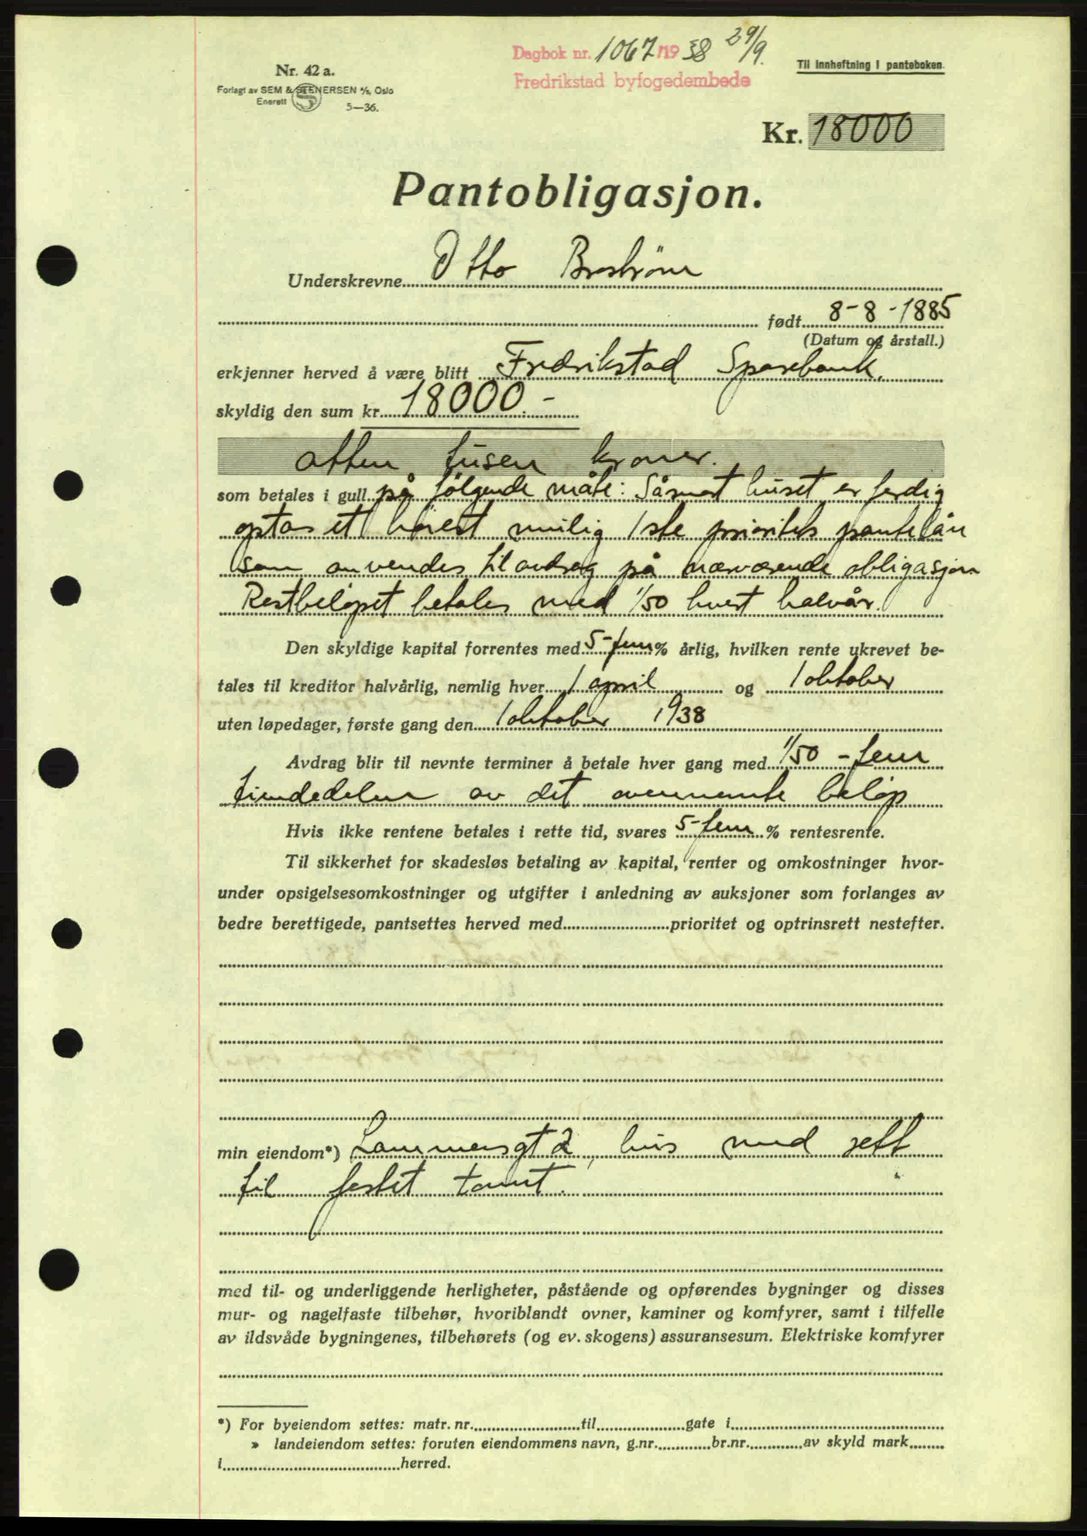 Dagbok nr. 1067/1938 29/9.
Fredrikstad byfogedembede
Til innheftning i panteboken.
Nr. 42 a.
Forlagt av SEM & STENERSEN A/S, Oslo
Enerett 5—36.
Kr. 18000
Pantobligasjon.
Underskrevne Otto Broström
født 8-8-1885
(Datum og årstall.)
erkjenner herved å være blitt Fredrikstad Sparebank.
skyldig den sum kr. 18000.-
atten tusen kroner.
som betales i gull på følgende måte: Såsnart huset er ferdig
optas et høiest mulig 1ste prioritets pantelån
som anvendes til avdrag på nærværende obligasjon
Restbeløpet betales med 1/50 hvert halvår.
Den skyldige kapital forrentes med 5-fem % årlig, hvilken rente ukrevet be-
tales til kreditor halvårlig, nemlig hver 1 april og 1 oktober
uten løpedager, første gang den 1 oktober 1938
Avdrag blir til nevnte terminer å betale hver gang med 1/50 - fem
tiendedeler av det ovennevnte beløp
Hvis ikke rentene betales i rette tid, svares 5-fem % rentesrente.
Til sikkerhet for skadesløs betaling av kapital, renter og omkostninger hvor-
under opsigelsesomkostninger og utgifter i anledning av auksjoner som forlanges av
bedre berettigede, pantsettes herved med prioritet og optrinsrett nestefter.
min eiendom*) Lammersgt 2, hus med rett
til festet tomt.
med til- og underliggende herligheter, påstående og opførendes bygninger og disses
mur- og nagelfaste tilbehør, hvoriblandt ovner, kaminer og komfyrer, samt i tilfelle
av ildsvåde bygningenes, tilbehørets (og ev. skogens) assuransesum. Elektriske komfyrer
*) For byeiendom settes: matr. nr. til gate i
» landeiendom settes: foruten eiendommens navn, g.nr. br.nr. av skyld mark
i herred.